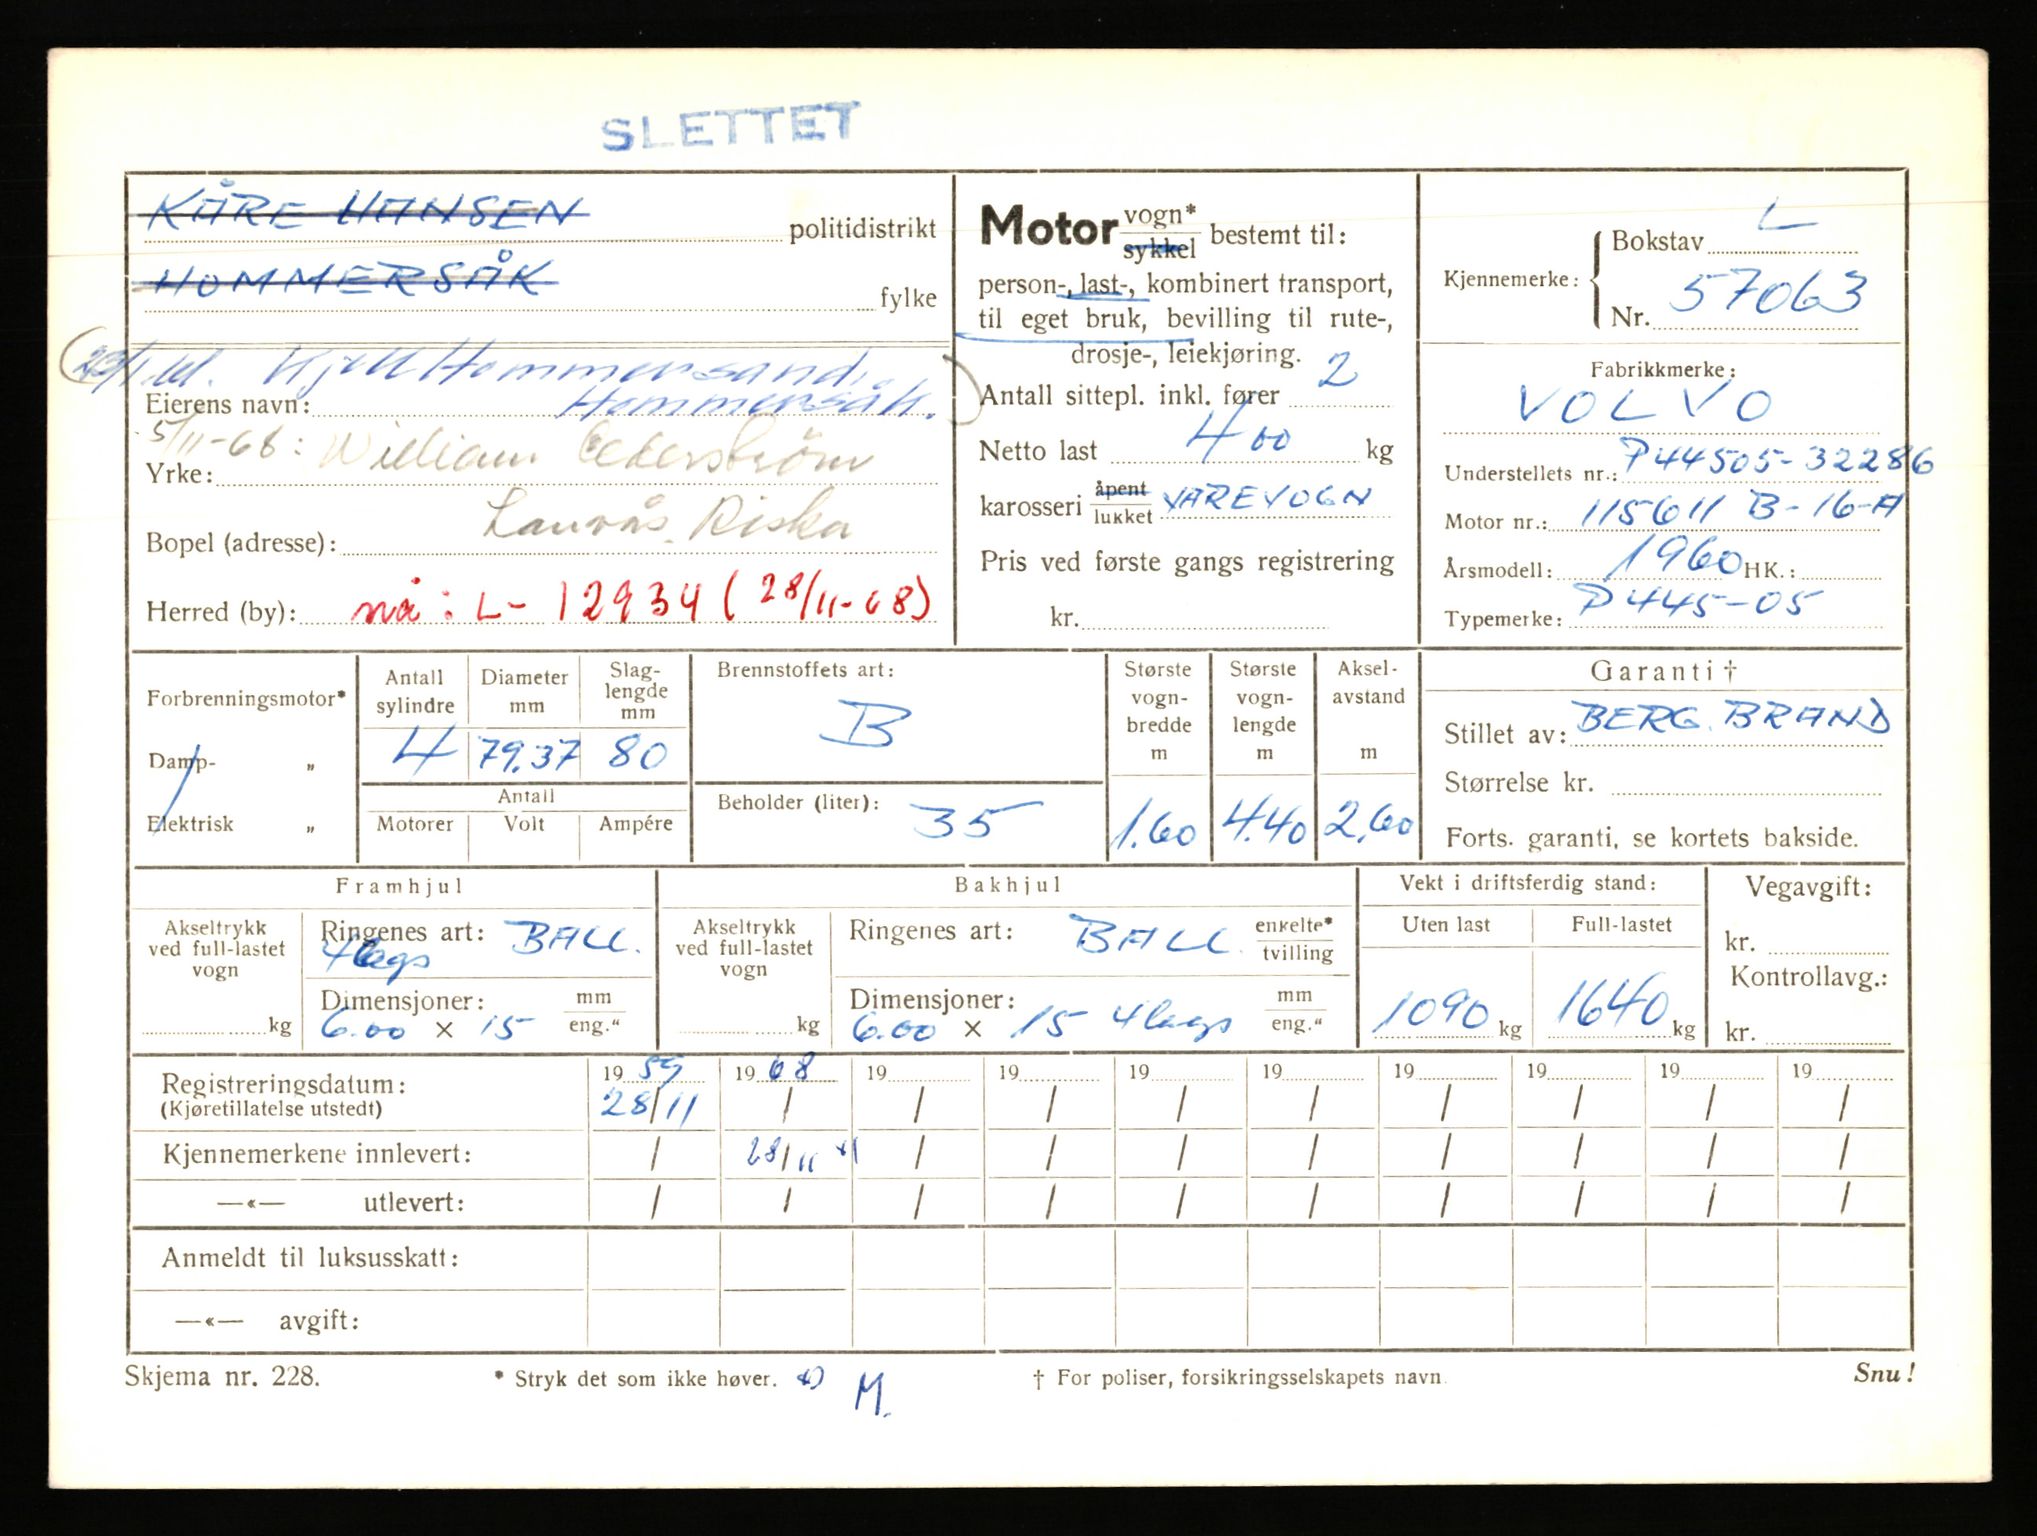 SLETTET
KÅRE HANSEN politidistrikt
HOMMERSÅK fylke
Kjell Hommersand,
Eierens navn: Hommersåk.
5/11-68: William Cederström
Yrke:
Lauvås, Riska
Bopel (adresse):
Herred (by): nå: L- 12934 (28/11-68)
Motor vogn* sykkel bestemt til:
person-, last-, kombinert transport,
til eget bruk, bevilling til rute-,
drosje-, leiekjøring.
Antall sittepl. inkl. fører 2
Netto last 400 kg
karosseri åpent lukket VAREVOGN
Pris ved første gangs registrering
kr.
Kjennemerke: Bokstav L
Nr. 57063
Fabrikkmerke:
VOLVO
Understellets nr.: P44505-32286
Motor nr.: 115611 B-16-A
Årsmodell: 1960 HK.:
Typemerke: P445-05
Forbrenningsmotor*
Damp- „
Elektrisk „
Antall sylindre Diameter mm Slag-lengde mm
4 79.37 80
Antall
Motorer Volt Ampére
Brennstoffets art:
B
Beholder (liter): 35
Største vogn-bredde m Største vogn-lengde m Aksel-avstand m
1.60 4.40 2,60
Garanti †
Stillet av: BERG. BRAND
Størrelse kr.
Forts. garanti, se kortets bakside.
Framhjul
Akseltrykk ved full-lastet vogn
kg
Ringenes art: BALL.
4 lags
Dimensjoner: mm eng."
6.00 × 15
Bakhjul
Akseltrykk ved full-lastet vogn
kg
Ringenes art: BALL. enkelte* tvilling
Dimensjoner: mm eng."
6.00 × 15 4 lags
Vekt i driftsferdig stand:
Uten last Full-lastet
1090 kg 1640 kg
Vegavgift:
kr.
Kontrollavg.:
kr.
Registreringsdatum: 19 59 19 68 19 19 19 19 19 19 19 19
(Kjøretillatelse utstedt) 28/11 / / / / / / / / /
Kjennemerkene innlevert: / 28/11 / / / / / / / /
—«— utlevert: / / / / / / / / / /
Anmeldt til luksusskatt:
—«— avgift:
Skjema nr. 228. * Stryk det som ikke høver. M. † For poliser, forsikringsselskapets navn Snu!